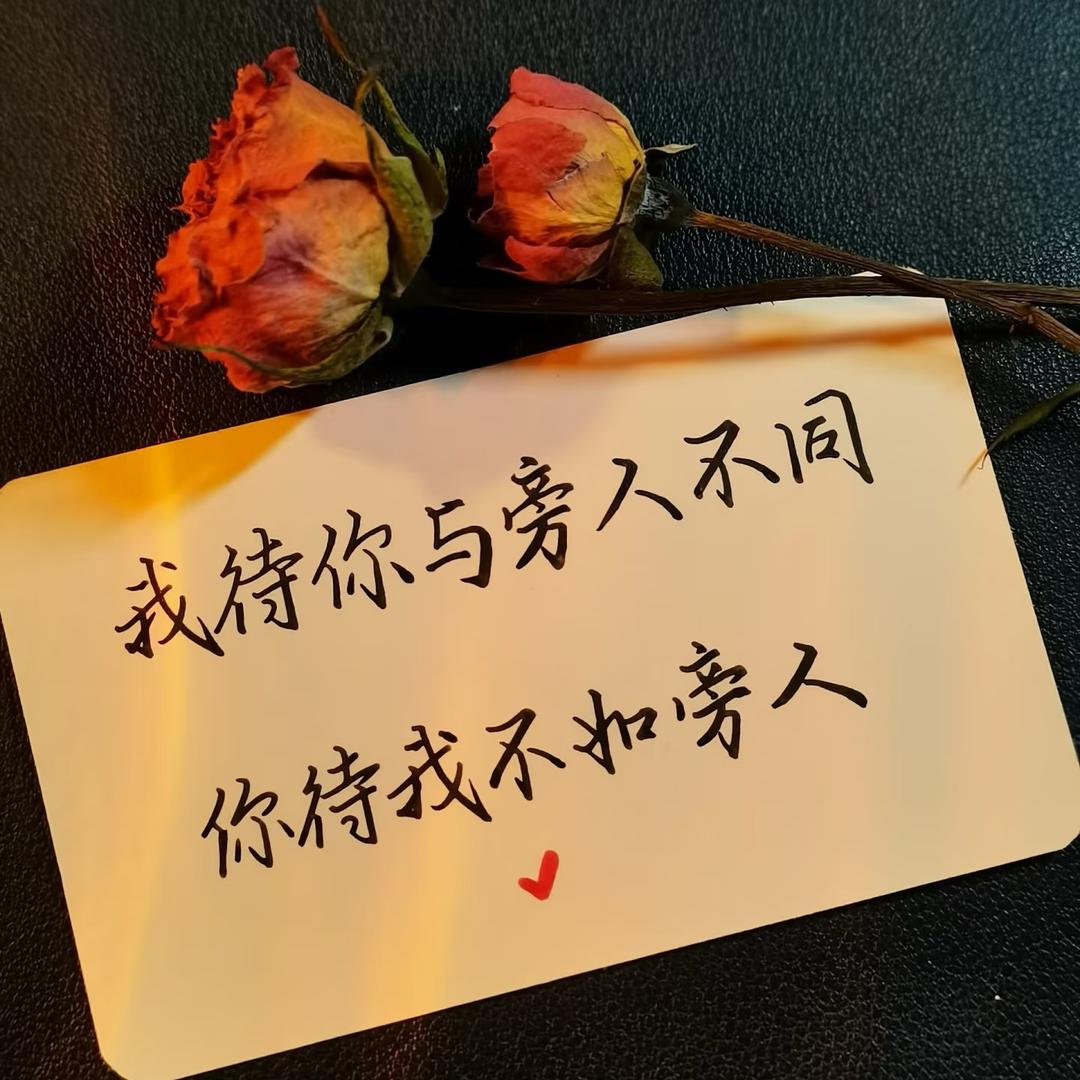 我待你与旁人不同
你待我不如旁人